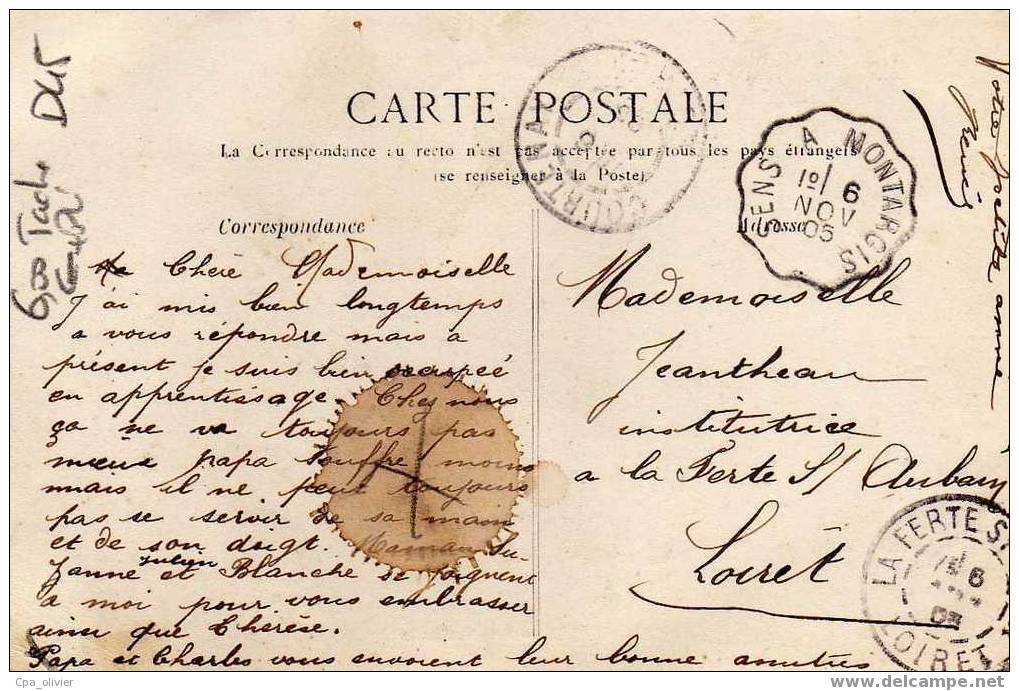 CARTE POSTALE
La Correspondance au recto n'est pas acceptée par tous les pays étrangers
(se renseigner à la Poste).
Correspondance
Adresse
SENS A MONTARGIS
6
NOV
05
COURTENAY
Chère Mademoiselle
J'ai mis bien longtemps
a vous répondre mais a
présent je suis bien occupeé
en apprentissage. Chez nous
ça ne va toujours pas
mieux papa souffre moins
mais il ne peut toujours
pas se servir de sa main
et de son doigt. Maman Su-
zanne Julien et Blanche se joignent
a moi pour vous embrasser
ainsi que Thérèse.
Papa et Charles vous envoient leur bonne amitiés
Votre petite amie
Mademoiselle
Jeantheau
institutrice
a la Ferte S/ Aubain
Loiret
LA FERTE S
6
LOIRET
Cpa_olivier
delcampe.net